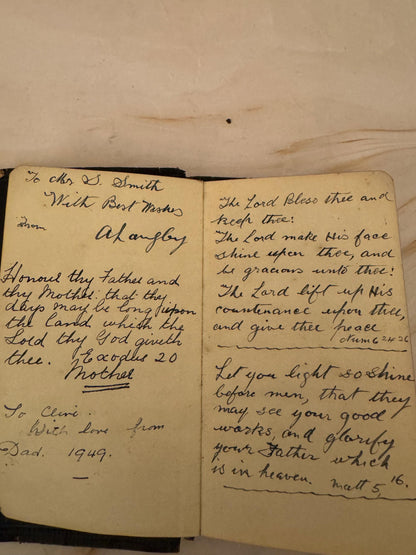 To Mr S. Smith
With Best Wishes
From
A Langley
Honour thy Father and
thy Mother. that thy
days may be long upon
the land which the
Lord thy God giveth
thee. Exodus 20
Mother
To Clive.
With love from
Dad. 1949.
The Lord Bless thee and
keep thee:
The Lord make His face
shine upon thee, and
be gracious unto thee:
The Lord lift up His
countenance upon thee,
and give thee peace
Num 6 24-26
Let you light so shine
before men, that they
may see your good
works, and glorify
your Father which
is in heaven. Matt 5, 16.